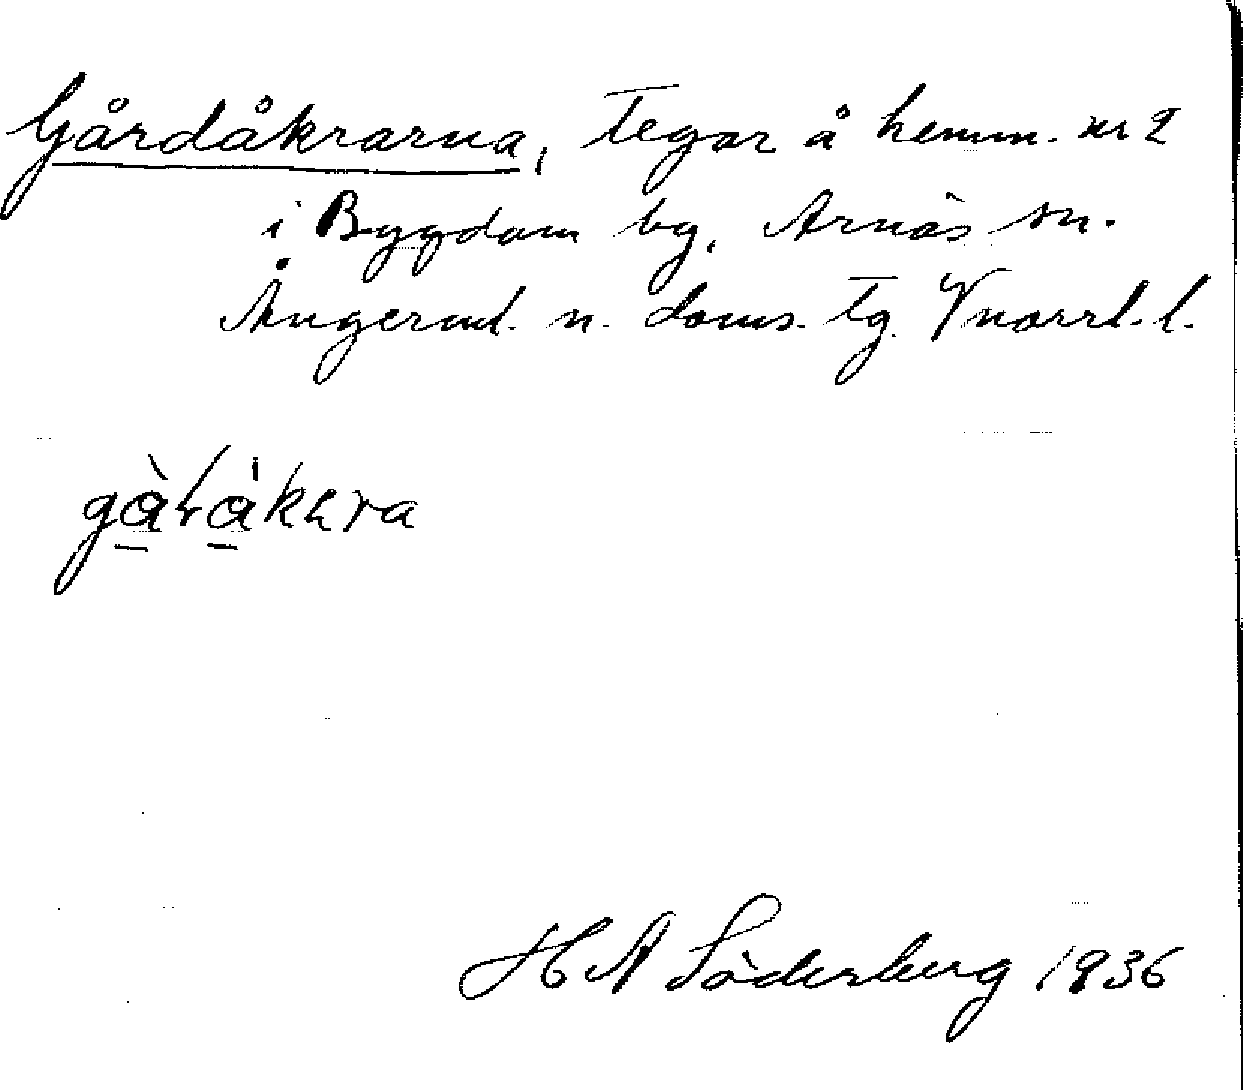 Gårdåkrarna, Tegar å hemm. nr 2
i Bygdom bg. Arnäs sn.
Ångerml. n. doms. tg. Vnorrl. l.
H A Söderberg 1936